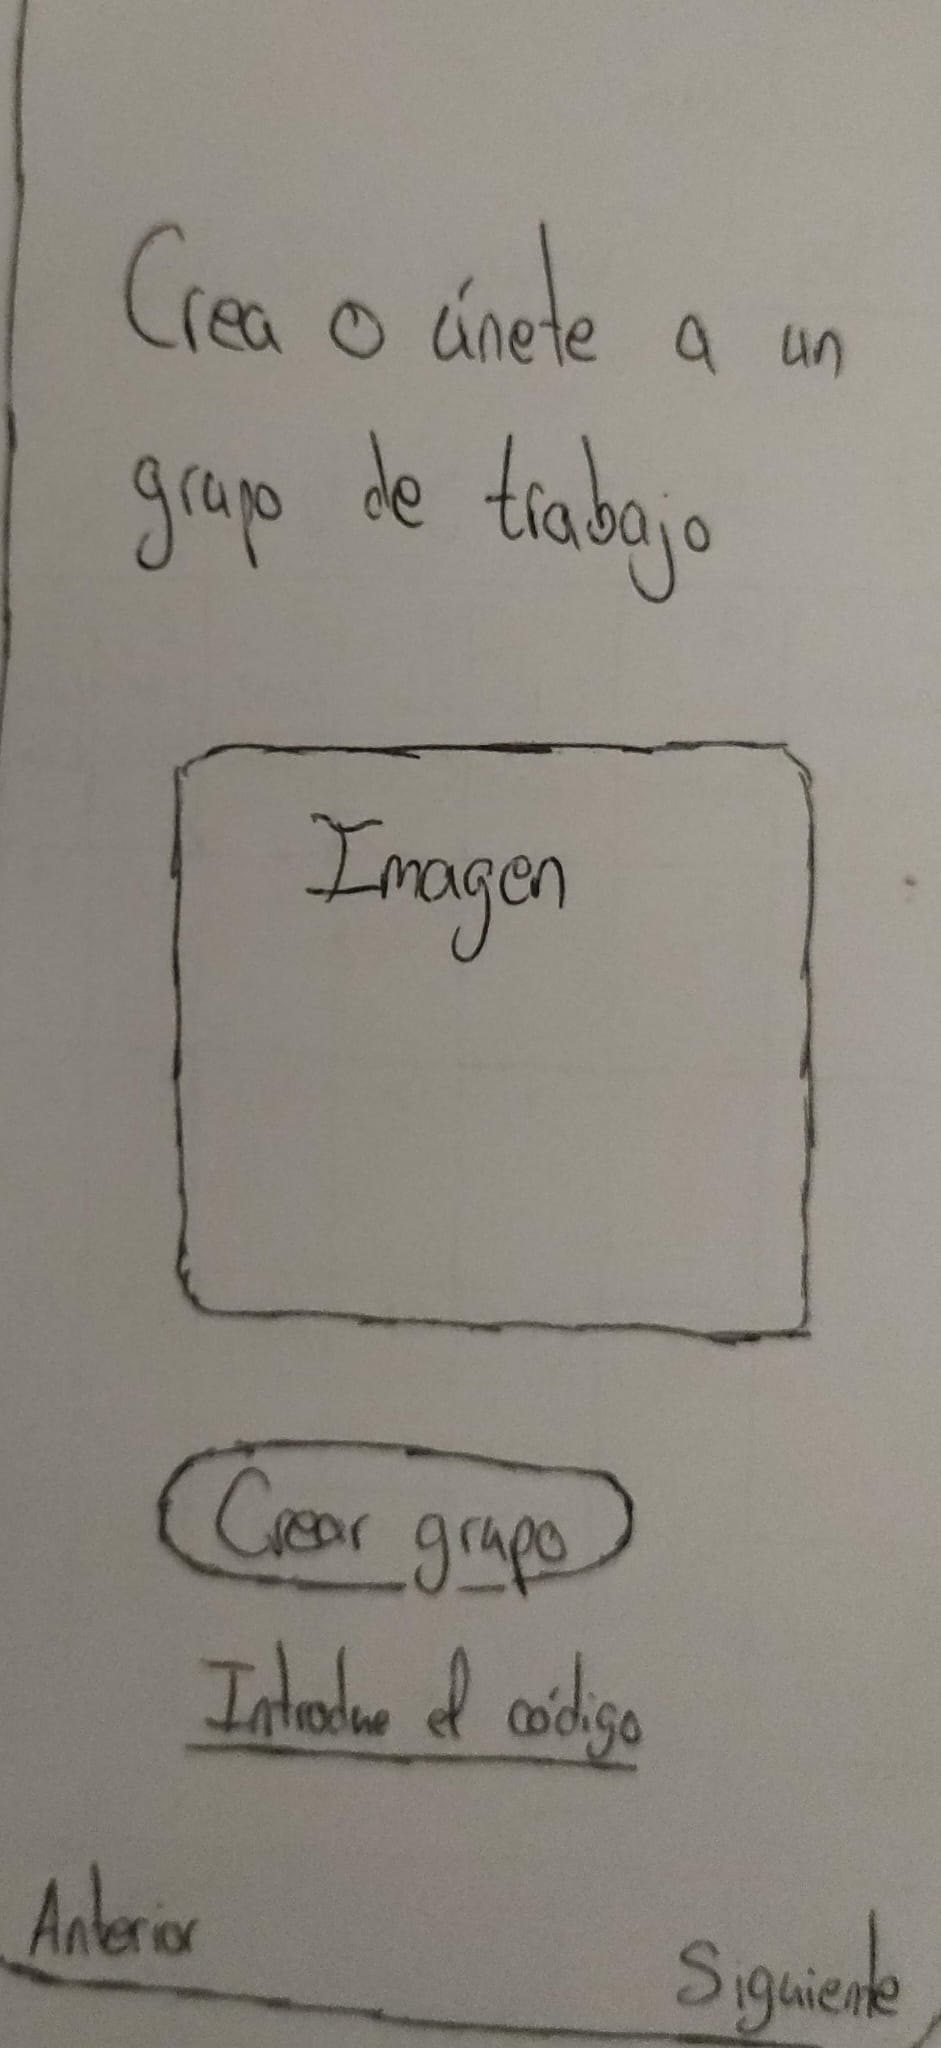 Crea o únete a un
grupo de trabajo
Imagen
Crear grupo
Introduce el código
Anterior
Siguiente